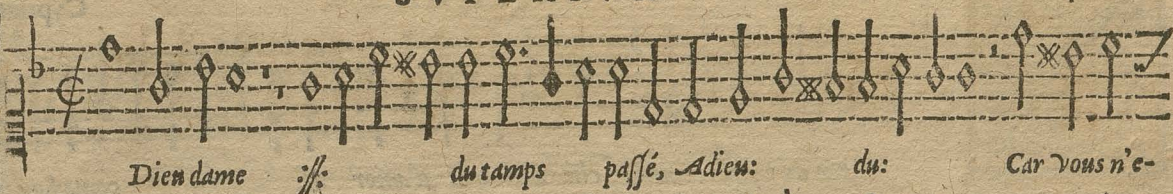 Dieu dame :||: du tamps paſſé, Adieu: du: Car vous n'e-